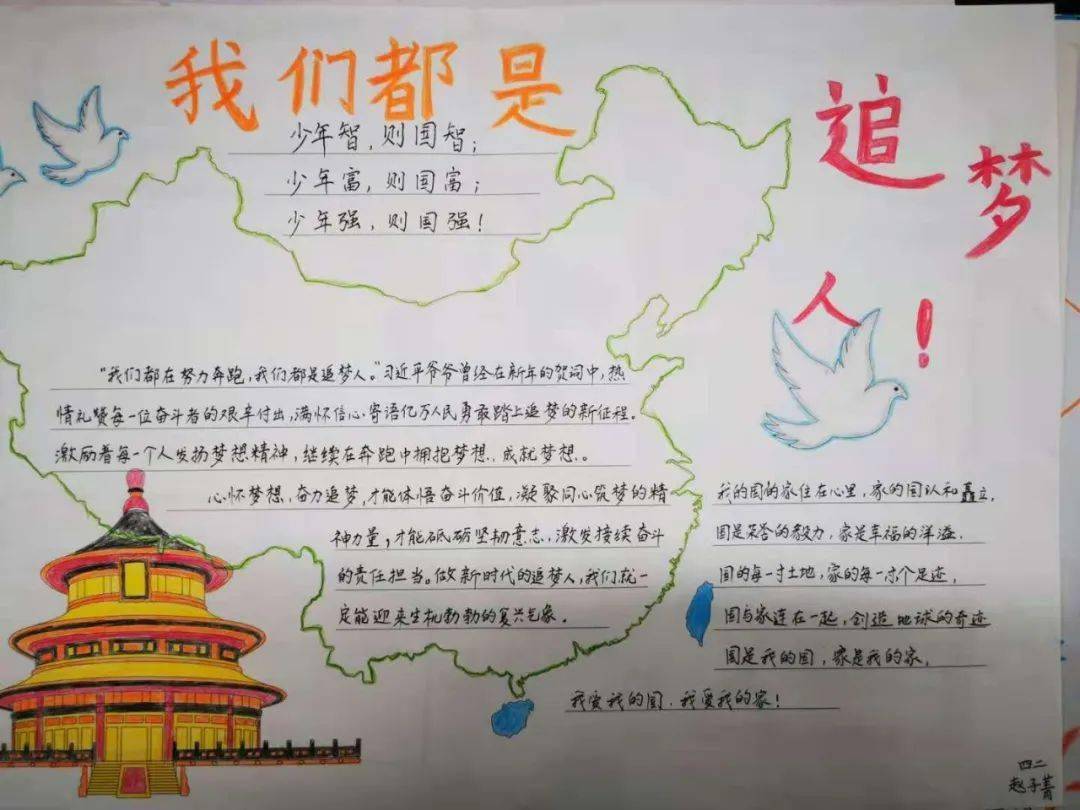 我们都是
追梦
人！
少年智，则国智；
少年富，则国富；
少年强，则国强！
“我们都在努力奔跑，我们都是追梦人。”习近平爷爷曾经在新年的贺词中，热
情礼赞每一位奋斗者的艰辛付出，满怀信心寄语亿万人民勇敢踏上追梦的新征程.
激励着每一个人发扬梦想精神，继续在奔跑中拥抱梦想、成就梦想。
心怀梦想、奋力追梦，才能体悟奋斗价值，凝聚同心筑梦的精
神力量，才能砥砺坚韧意志，激发接续奋斗
的责任担当。做新时代的追梦人，我们就一
定能迎来生机勃勃的复兴气象。
我的国的家住在心里，家的国以和矗立.
国是荣誉的毅力，家是幸福的洋溢.
国的每一寸土地，家的每一寸个足迹，
国与家连在一起，创造地球的奇迹
国是我的国，家是我的家，
我爱我的国，我爱我的家！
四二
赵子菁